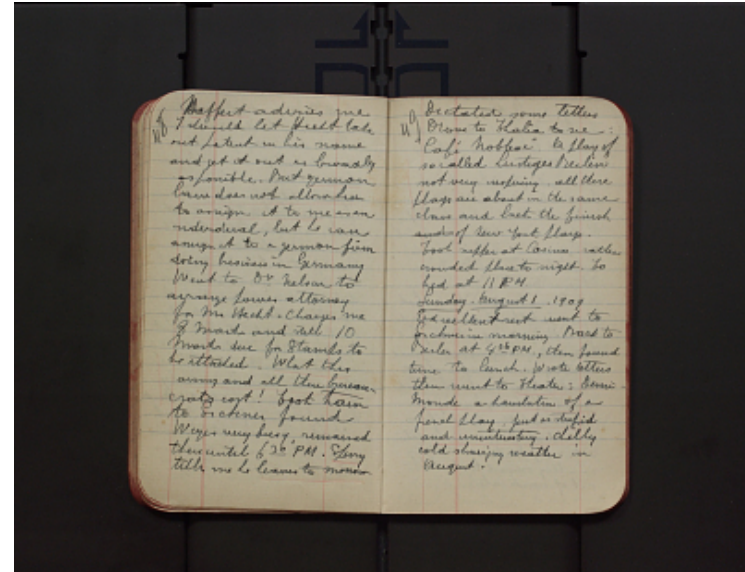 48
Maffert advises me
I should let Hecht take
out patent in his name
and get it out as broadly
as possible. But german
law does not allow him
to assign it to me as an
individual, but he can
assign it to a german firm
doing business in Germany
Went to Dr Nelson to
arrange power attorney
for Mr Hecht. Charges me
8 Marks and tells 10
Marks due for Stamps to
be attached. What this
army and all their bureau-
crats cost! Took train
to Erckner found
Weger very busy, remained
there until 6 30 PM.
tells me he leaves to morrow
49
Dictated some letters
Drove to Thalia to see:
Café Noblesse a play of
so called Lustiges Berlin
not very inspiring. all these
plays are about in the same
class and lack the finish
of New York plays.
Took supper at Casino rather
crowded place to night. To
bed at 11 PM
Sunday. August 1. 1909
Excellent rest went to
Erckner in morning. Back to
Berlin at 4 30 PM, then found
time to lunch. Wrote letters
then went to theater: Demi-
Monde a translation of a
french play. just as stupid
and uninteresting. chilly
cold shivering weather in
August.